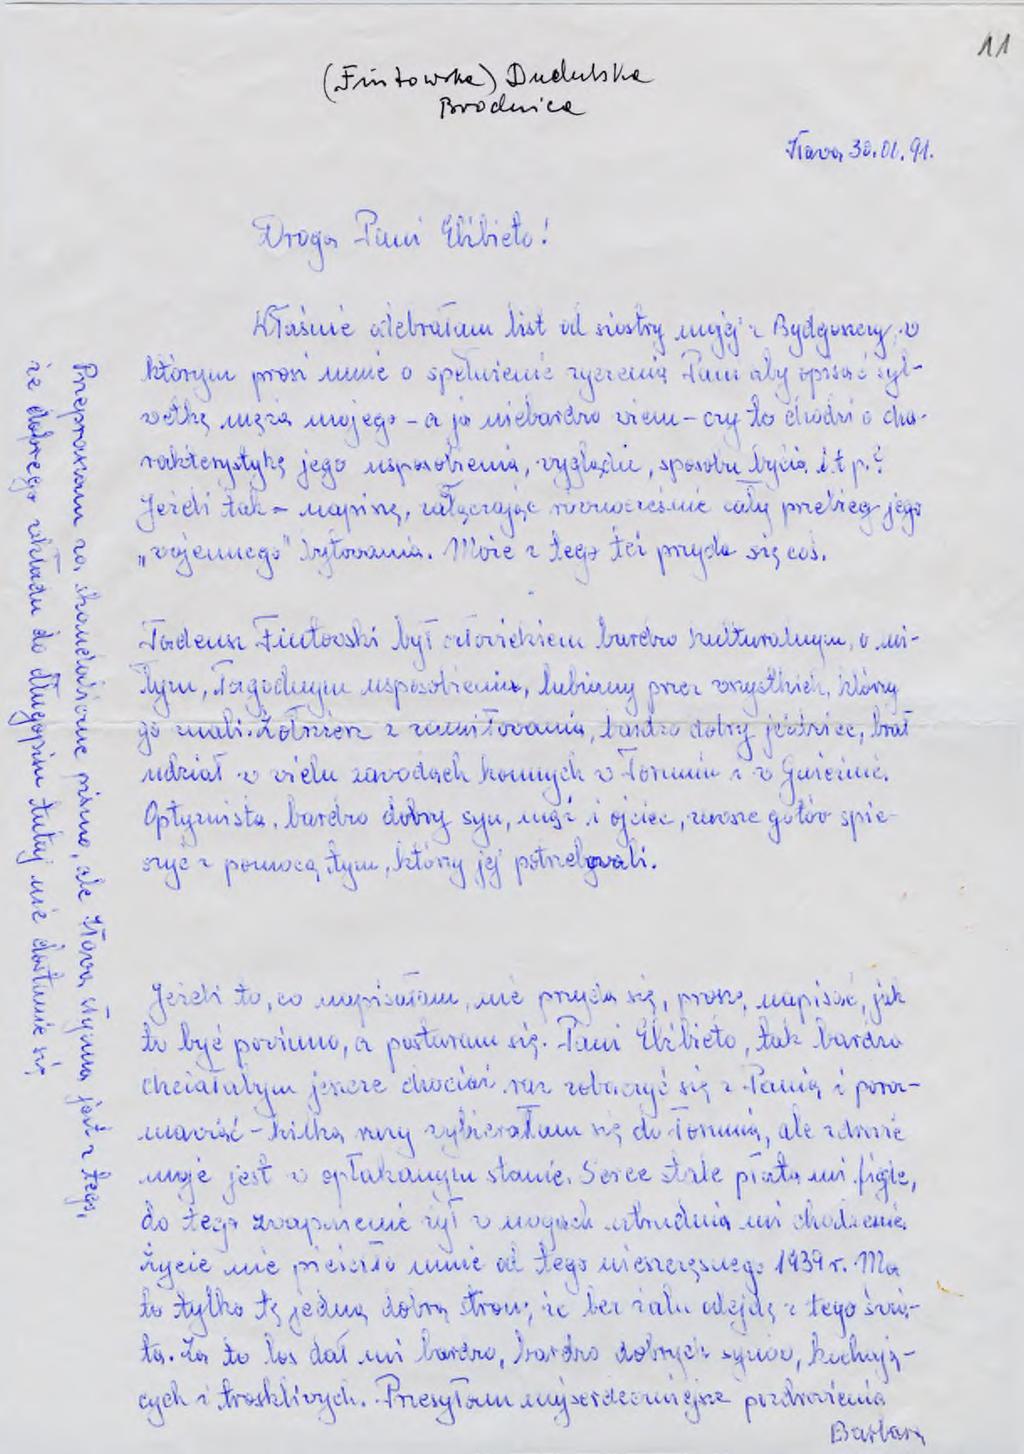 11
(Fintowska) Dudulska
Brodnica
Iława 30.01.91.
Droga Pani Elżbieto!
Właśnie odebrałam list od siostry mojej z Bydgoszczy, w
którym prosi mnie o spełnienie życzenia Pani aby opisać syl-
wetkę męża mojego – a ja niebardzo wiem – czy to chodzi o cha-
rakterystykę jego usposobienia, wyglądu, sposobu bycia i.t.p.?
Jeżeli tak – napiszę, załączając równocześnie cały przebieg jego
„wojennego" bytowania. Może z tego też przyda się coś.
Tadeusz Fintowski był człowiekiem bardzo kulturalnym, o mi-
łym, łagodnym usposobieniu, lubiany przez wszystkich, którzy
go znali. Żołnierz z zamiłowania, bardzo dobry jeździec, brał
udział w wielu zawodach konnych w Toruniu i w Gnieźnie.
Optymista, bardzo dobry syn, mąż i ojciec, zawsze gotów spie-
szyć z pomocą tym, którzy jej potrzebowali.
Jeżeli to, co napisałam, nie przyda się, proszę napisać, jak
to być powinno, a postaram się. Pani Elżbieto, tak bardzo
chciałabym jeszcze chociaż raz zobaczyć się z Panią i poroz-
mawiać – kilka razy wybierałam się do Torunia, ale zdrowie
moje jest w opłakanym stanie. Serce stale płata mi figle,
do tego zwapnienie żył w nogach utrudnia mi chodzenie.
Życie nie pieściło mnie od tego nieszczęsnego 1939 r. Ma
to tylko tę jedną dobrą stronę, że bez żalu odejdę z tego świa-
ta. Za to los dał mi bardzo, bardzo dobrych synów, kochają-
cych i troskliwych. Przesyłam najserdeczniejsze pozdrowienia
Barbara
Przepraszam za pismo, ale Iława słynna jest z tego,
że dobrego wkładu do długopisu tutaj nie dostanie się